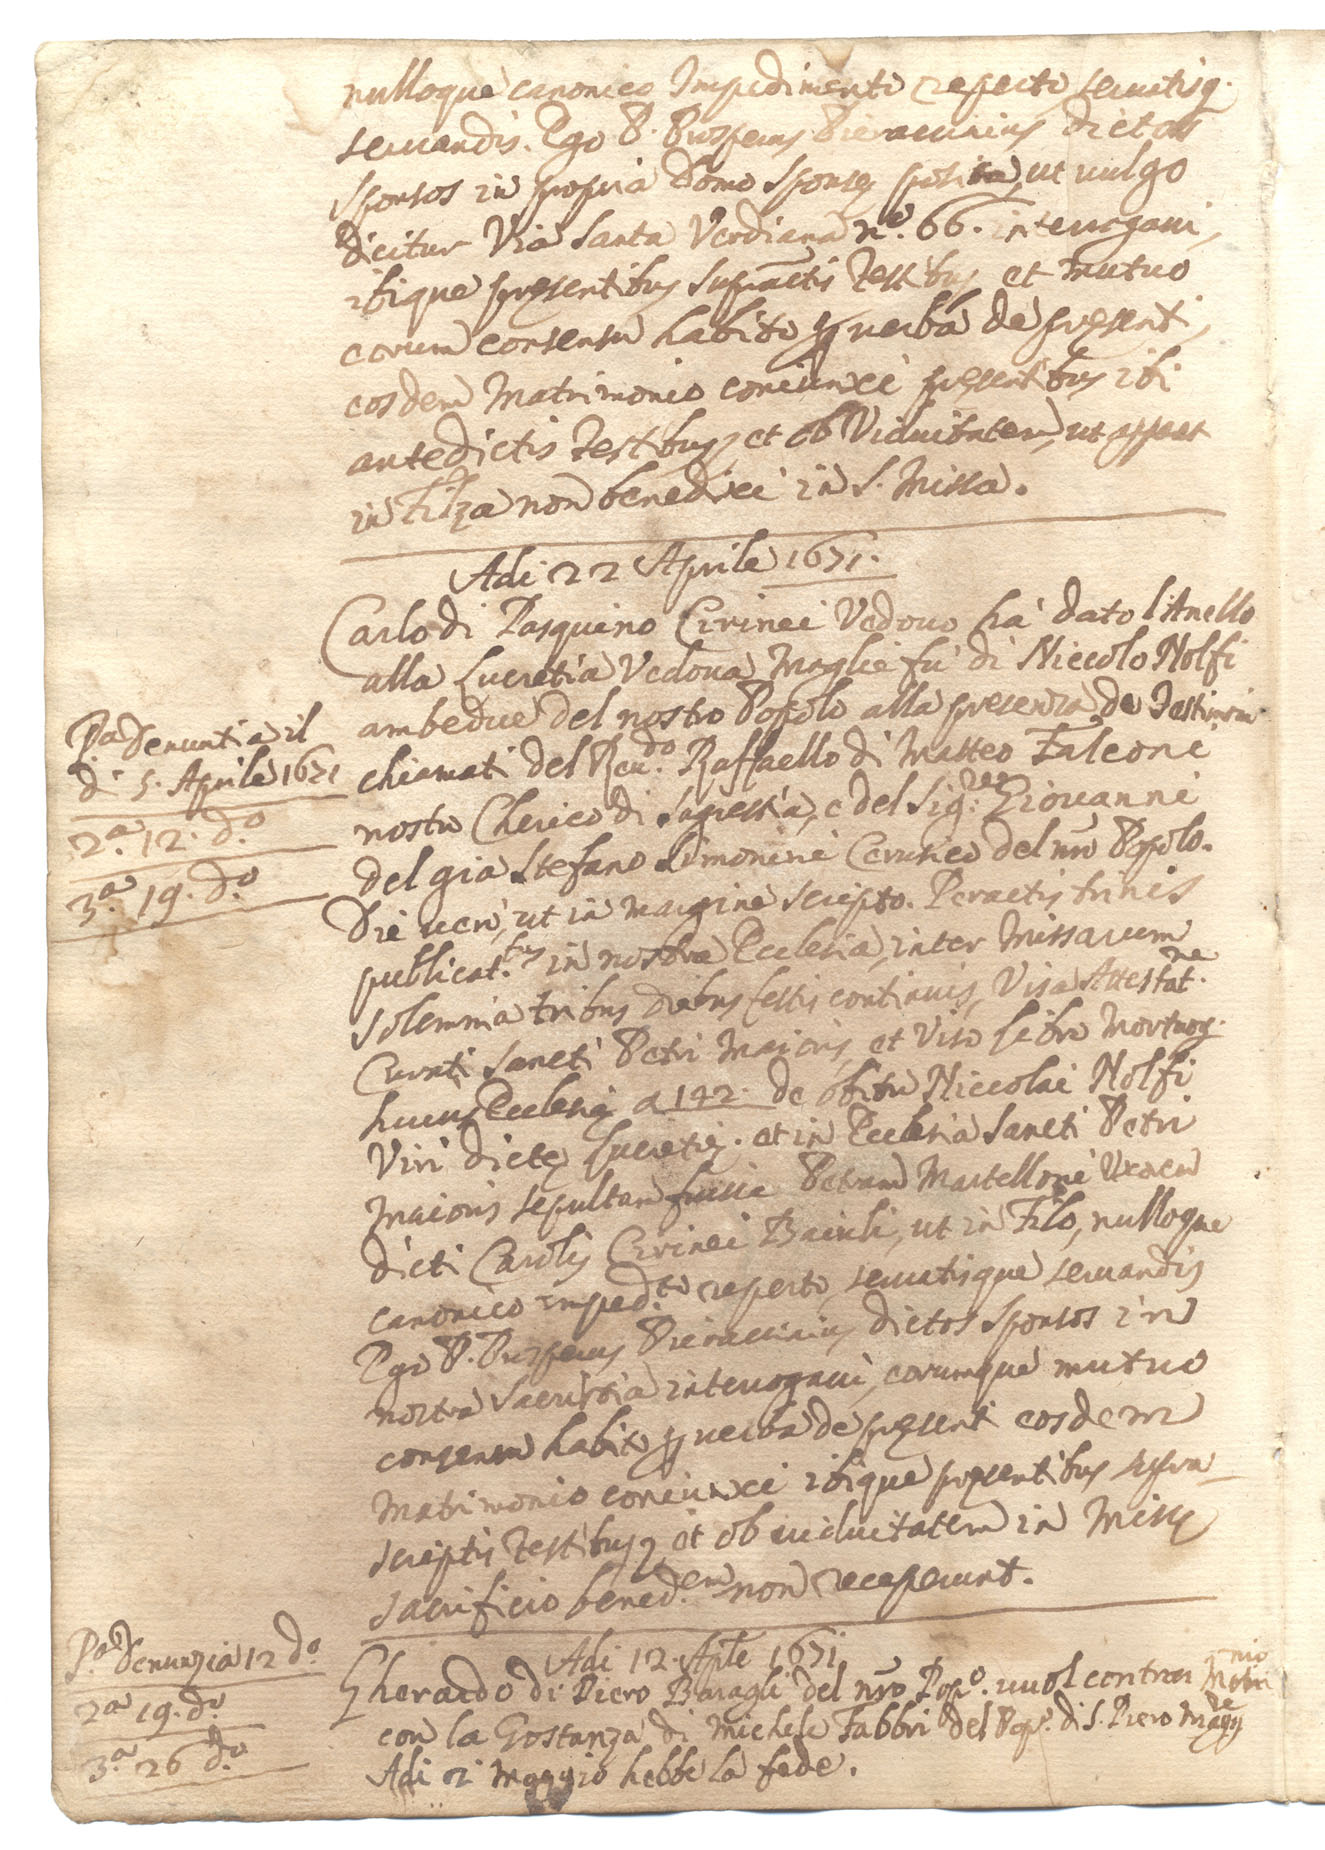 nulloque canonico Impedimento reperto seruatisq.
seruandis. Ego P. Prosperus Pieraccinius dictos
sponsos in propria Domo sponsę posita, ut uulgo
dicitur Via Santa Verdiana nº. 66. interrogaui,
ibique pręsentibus supractis Testibus, et mutuo
eorum consensu habito ꝑ uerba de pręsenti,
eosdem Matrimonio coniunxi pręsentibus ibi
antedictis Testibus, et ob Viduitatem, ut apparet
in Filza non benedixi in S. Missa.
Adi 22 Aprile 1671.
Carlo di Pasquino Cirinei Vedouo hà dato l'Anello
alla Lucretia Vedoua Moglie fù di Niccolo Nolfi
ambedue del nostro Popolo alla presenza de Testimoni
chiamati del Reu.do Raffaello di Matteo Falconi
nostro Cherico di Sagrestia, e del Sig.re Giouanni
del già Stefano Simonini Cerusico del nrõ Popolo.
Die uerò, ut in margine scripto. Peractis trinis
publicat.bus in nostra Ecclesia, inter Missarum
solemnia tribus diebus festis continuis, Visa Attestat.ne
Curati Sancti Petri Maioris, et Viso libro Mortuoꝝ.
huius Ecclesię a 142. de obitu Niccolai Nolfi
Viri dictę Lucretię. et in Ecclesia Sancti Petri
Maioris sepultam fuisse Petram Martelloni Uxorem
dicti Caroli Cirinei Bairli, ut in Filo, nulloque
canonico imped.to reperto, seruatisque seruandis
Ego P. Prosperus Pieraccinius dictos sponsos in
nostra Sacristia interrogaui, eorumque mutuo
consensu habito ꝑ uerba de pręsenti eosdem
Matrimonio coniunxi ibique pręsentibus supra
scriptis Testibus, et ob uiduitatem in Missę
sacrificio bened.em non receperunt.
Adi 12. Aple 1671.
Gherardo di Piero Baragli del nrõ Pop.º uuol contrar Matrinio
con la Gostanza di Michele Fabbri del Popº. di S. Piero Magg.re
Adi 2 Maggio hebbe la fede.
P.a Denuntia il
dì 5. Aprile 1671
2.a 12. d.º
3.a 19. d.º
P.a Denunzia 12 d.º
2.a 19. d.º
3.a 26 d.º